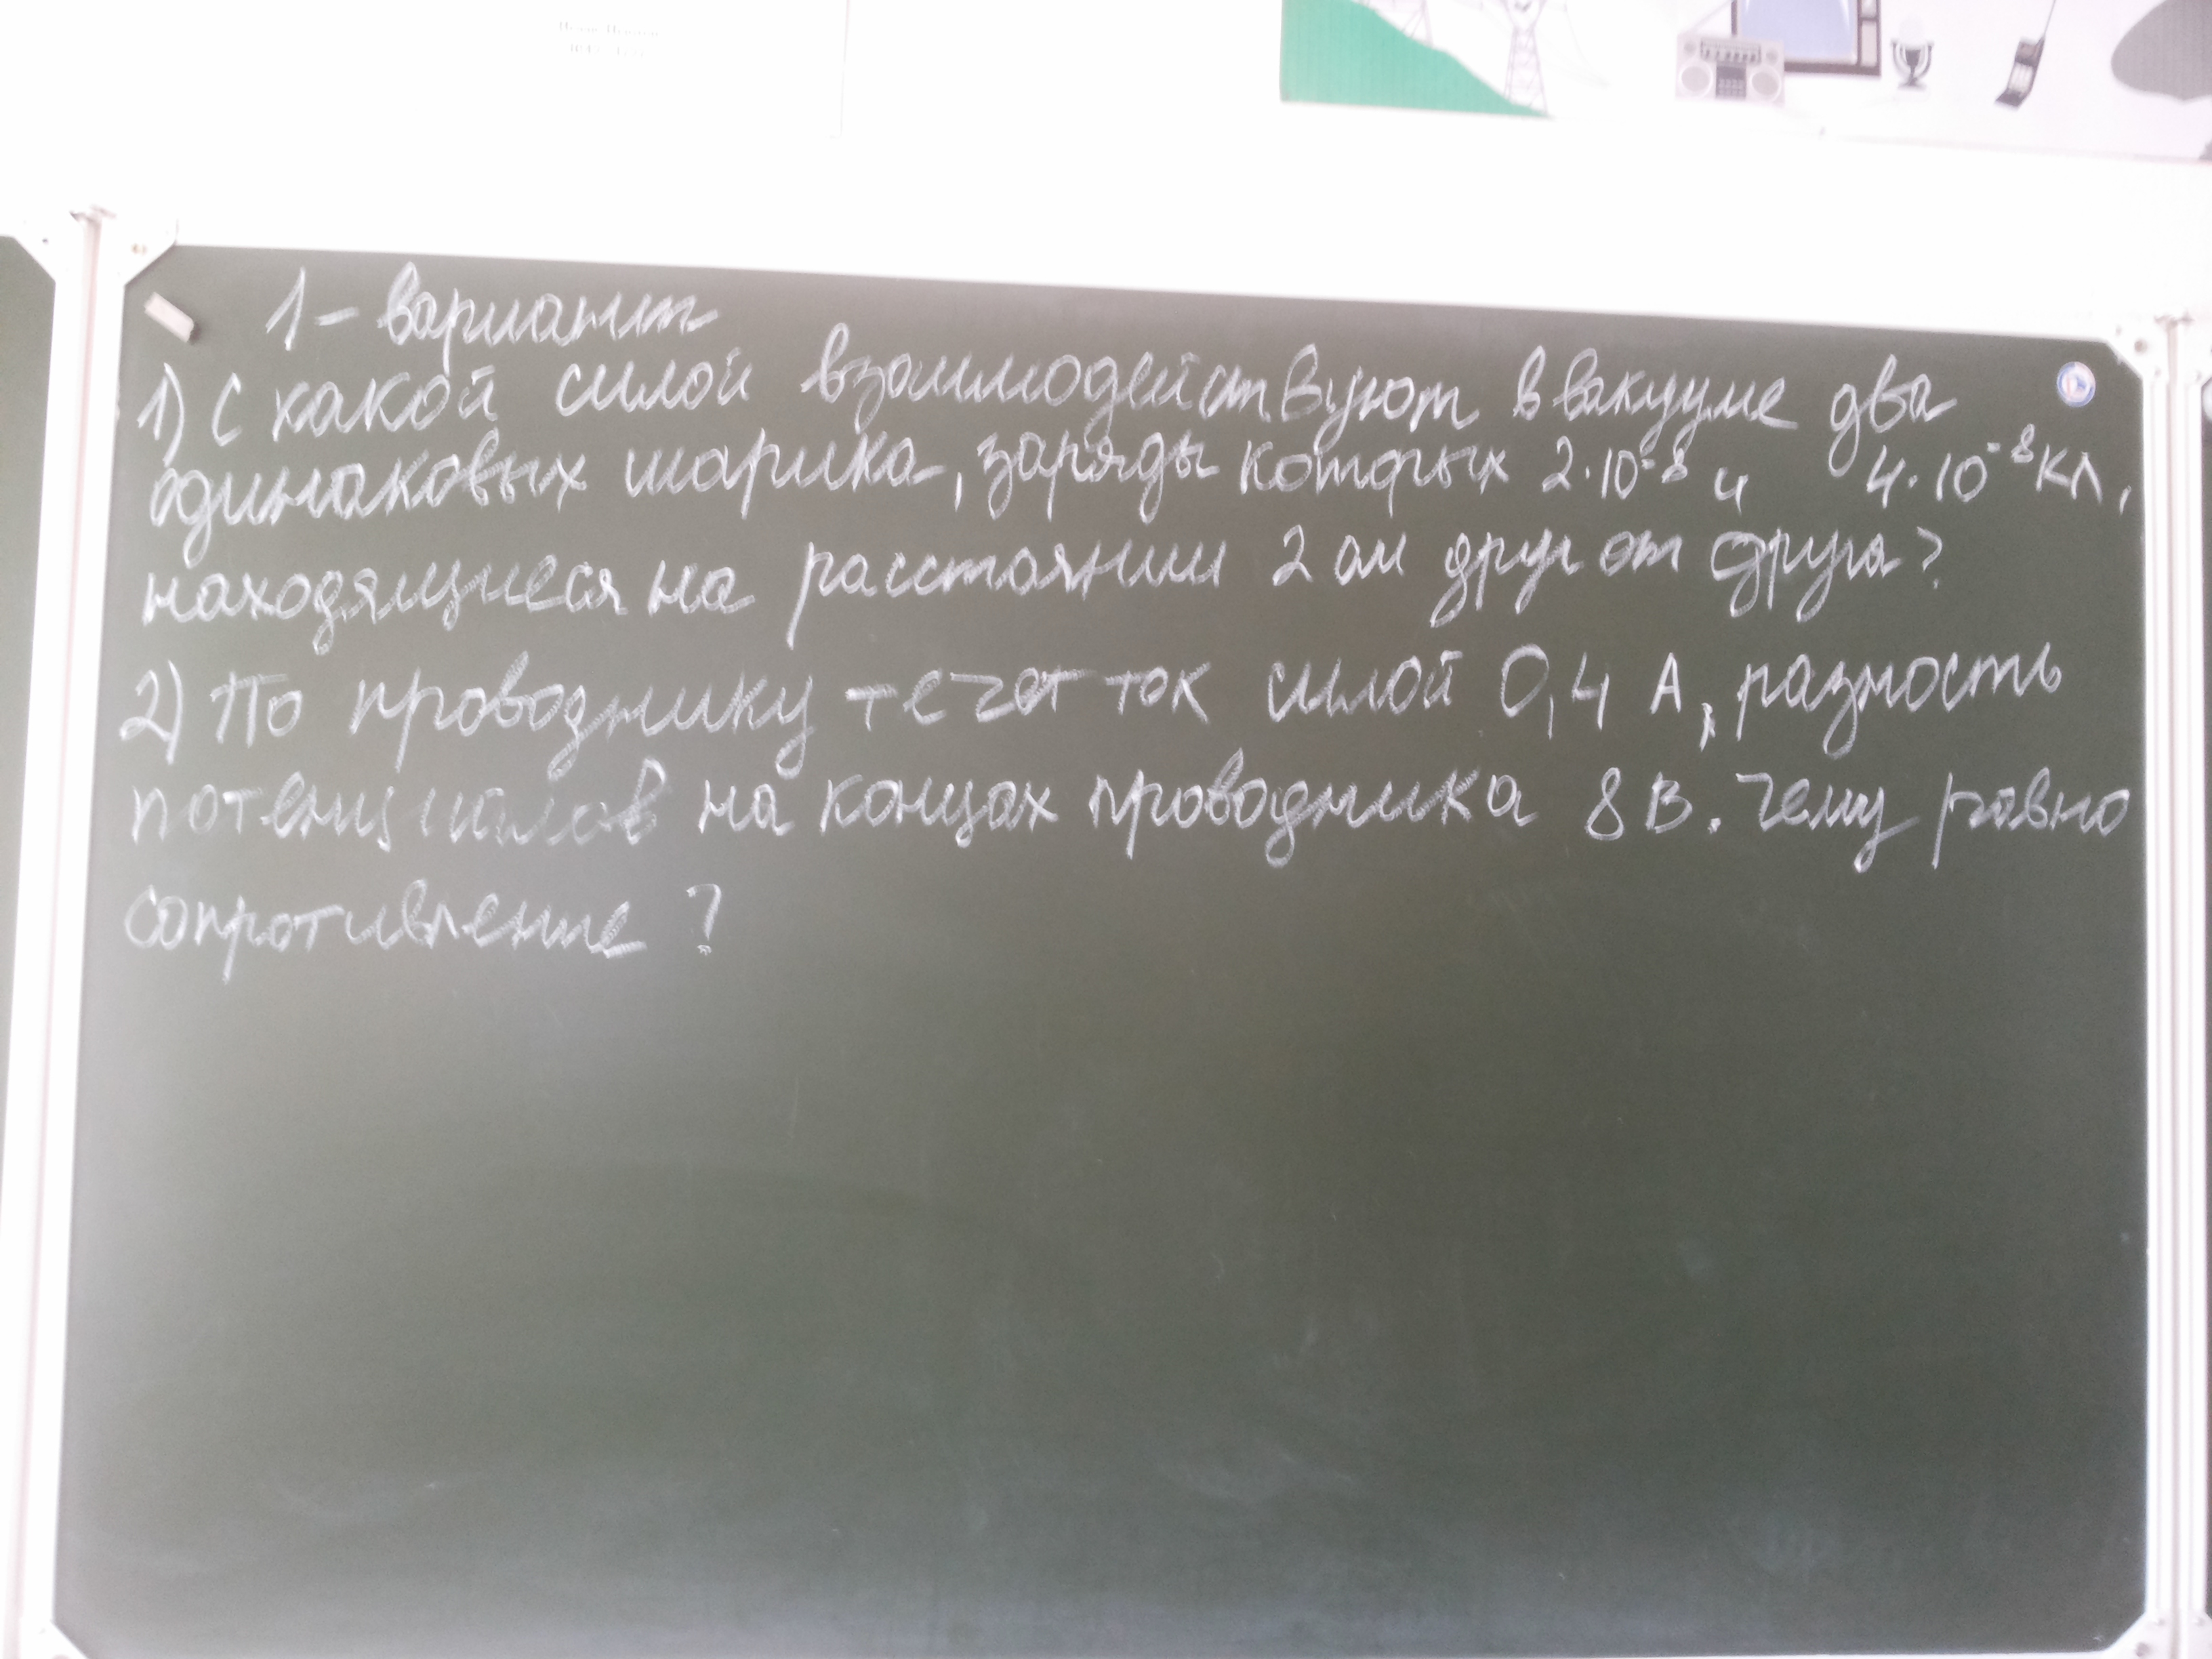 1 - вариант
1) С какой силой взаимодействуют в вакууме два
одинаковых шарика, заряды которых 2·10⁻⁸ и 4·10⁻⁸ Кл,
находящиеся на расстоянии 2 см друг от друга?
2) По проводнику течет ток силой 0,4 А, разность
потенциалов на концах проводника 8 В. Чему равно
сопротивление ?